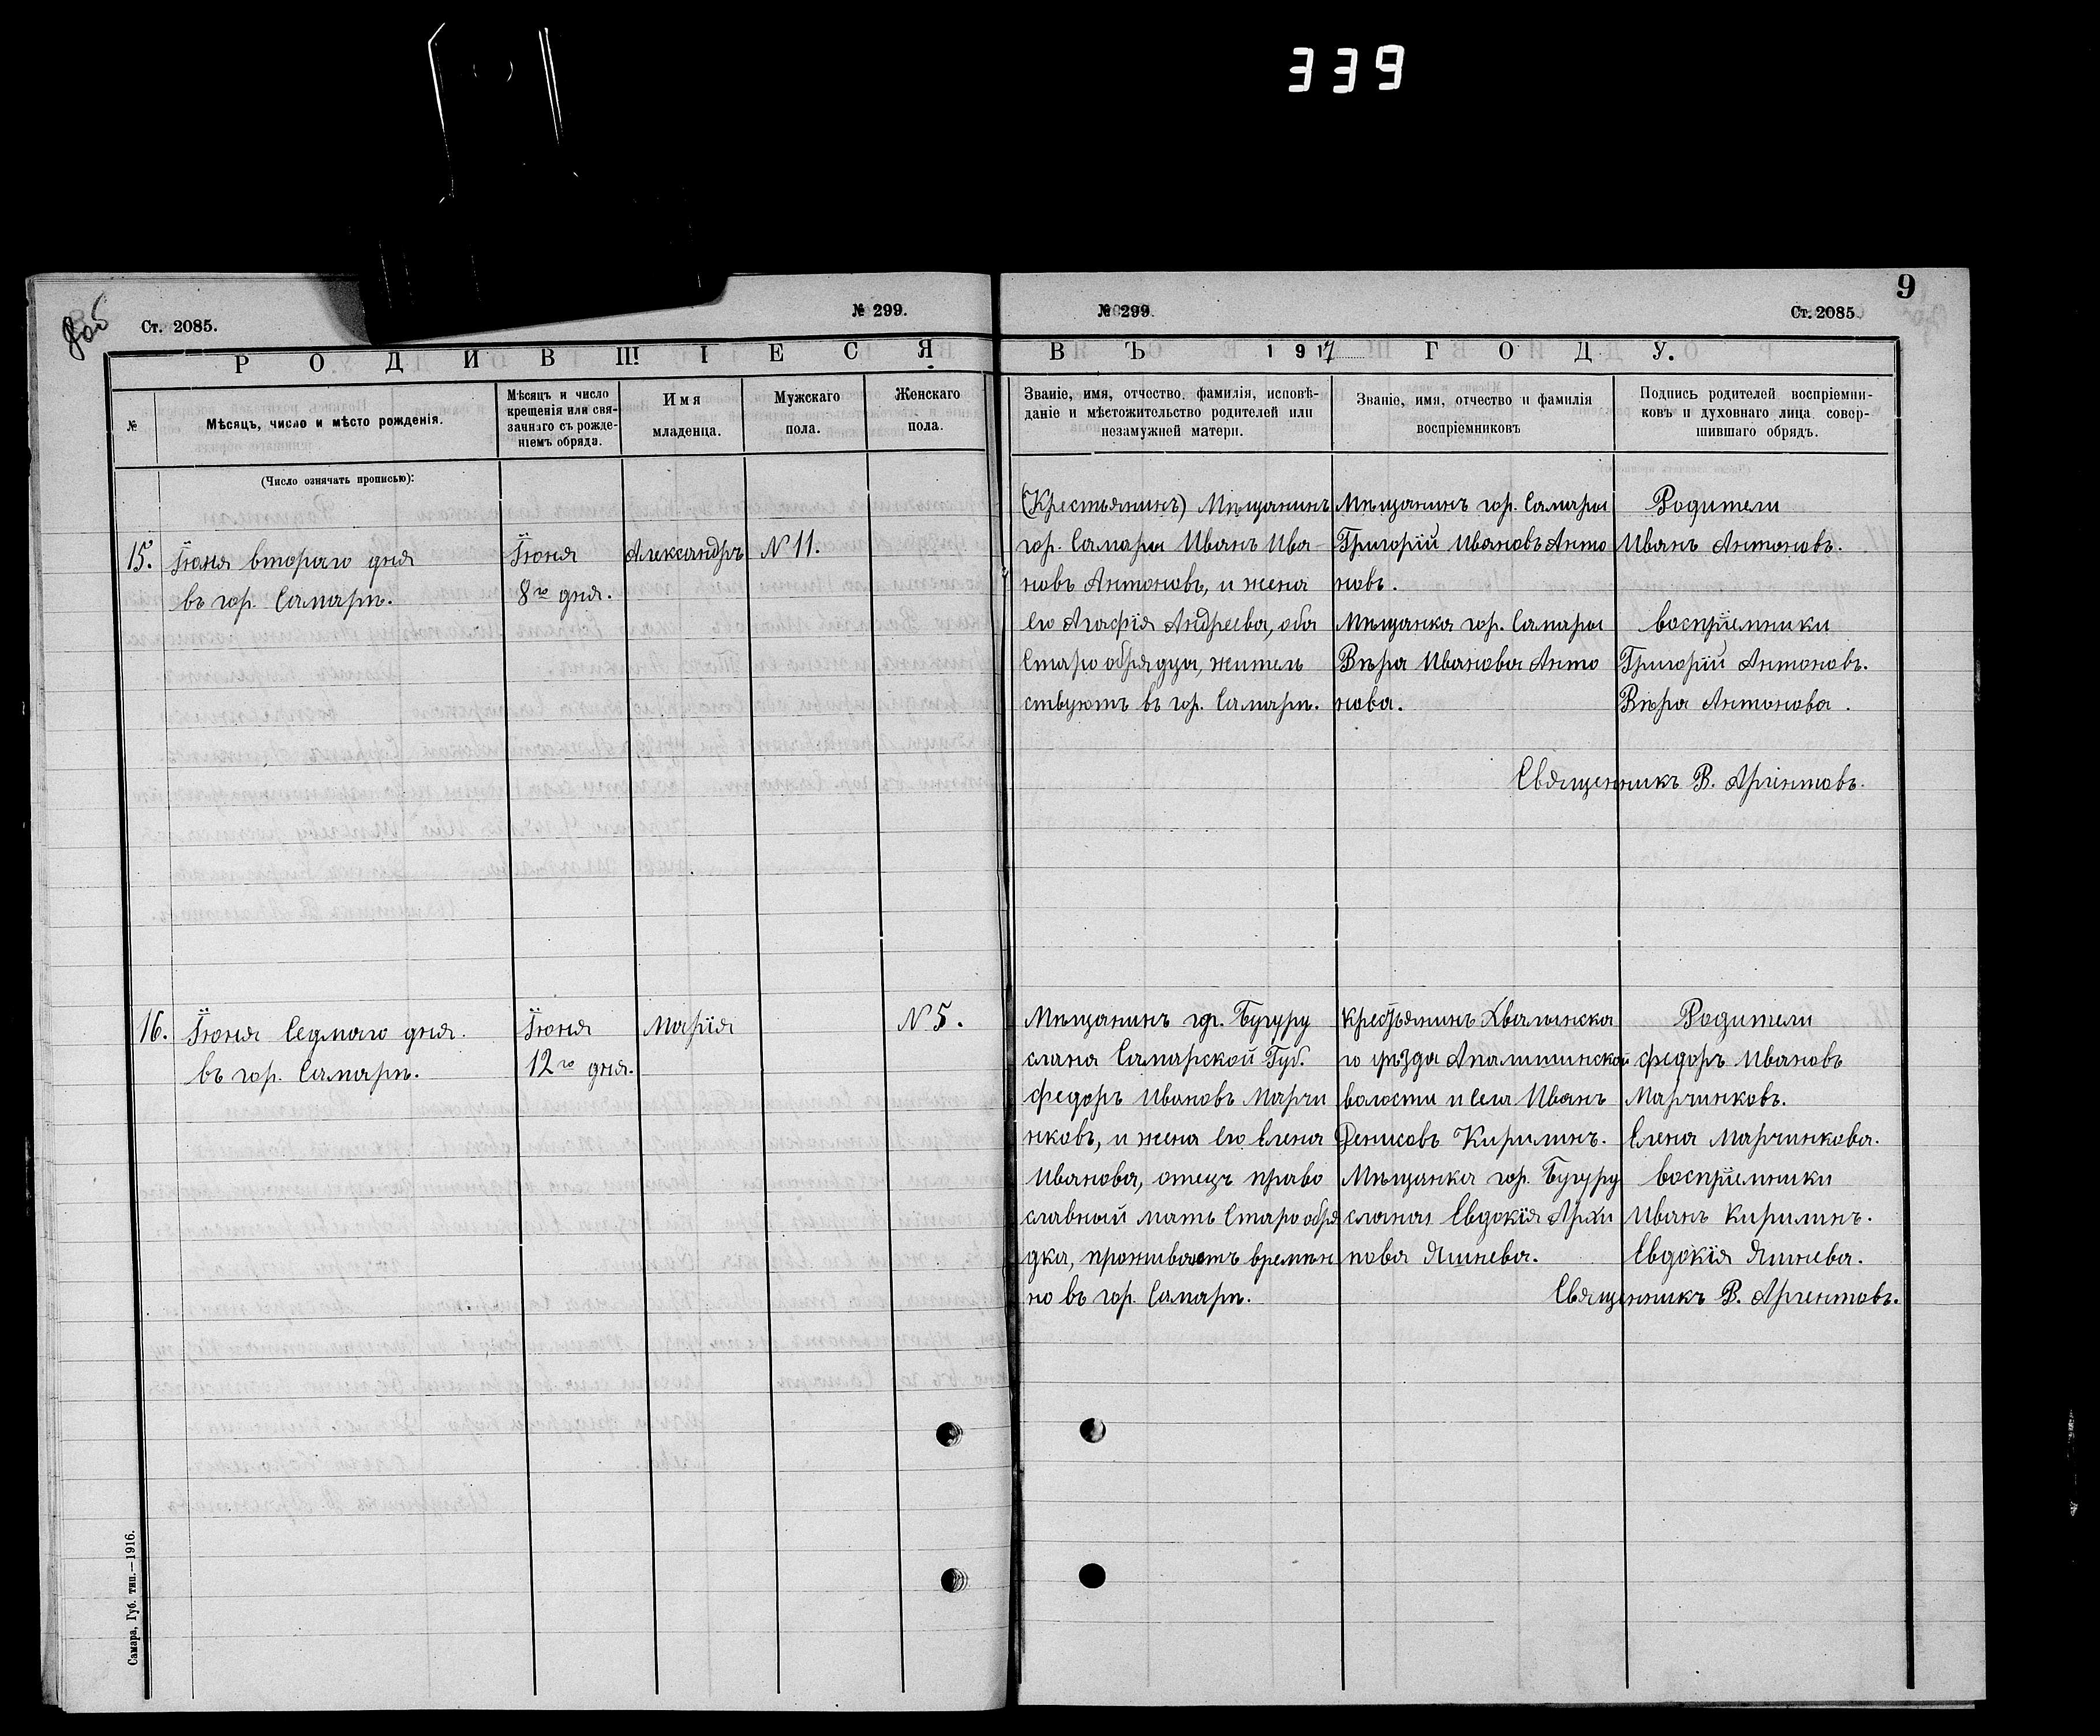 339
9
8об
Ст. 2085.
№ 299.
№ 299.
Ст. 2085.
РОДИВШІЕСЯ
ВЪ 1917 ГОДУ.
№
Мѣсяцъ, число и мѣсто рожденія.
Мѣсяцъ и число
крещенія или свя-
заннаго съ рожде-
ніемъ обряда.
Имя
младенца.
Мужскаго
пола.
Женскаго
пола.
Званіе, имя, отчество, фамилія, исповѣ-
даніе и мѣстожительство родителей или
незамужней матери.
Званіе, имя, отчество и фамилія
воспріемниковъ
Подпись родителей воспріемни-
ковъ и духовнаго лица совер-
шившаго обрядъ.
(Число означать прописью):
15.
Іюня втораго дня
въ гор. Самарѣ.
Іюня
8го дня.
Александръ
N 11.
(Крестьянинъ) Мѣщанинъ
гор. Самары Иванъ Ива-
новъ Антоновъ, и жена
его Агафія Андреева, оба
Старообрядцы, житель
ствуютъ въ гор. Самарѣ.
Мѣщанинъ гор. Самары
Григорій Ивановъ Анто
новъ.
Мѣщанка гор. Самары
Вѣра Иванова Анто
нова.
Родители
Иванъ Антоновъ.
воспріемники
Григорій Антоновъ.
Вѣра Антонова.
Священникъ В. Аргентовъ.
16.
Іюня Седмаго дня.
въ гор. Самарѣ.
Іюня
12го дня.
Марія
N 5.
Мѣщанинъ гор. Бугуру
слана Самарской Губ.
Федоръ Ивановъ Марчи
нковъ, и жена его Елена
Иванова, отецъ право
славный мать Старообря
дка, проживаютъ времѣн
но въ гор. Самарѣ.
Крестьянинъ Хвалынска
го уѣзда Апалишинской
волости и села Иванъ
Денисовъ Кирилинъ.
Мѣщанка гор. Бугуру
слана Евдокія Архи
пова Яшнева.
Родители
Федоръ Ивановъ
Марчинковъ.
Елена Марчинкова.
воспріемники
Иванъ Кирилинъ.
Евдокія Яшнева.
Священникъ В. Аргентовъ.
Самара, Губ. тип.—1916.